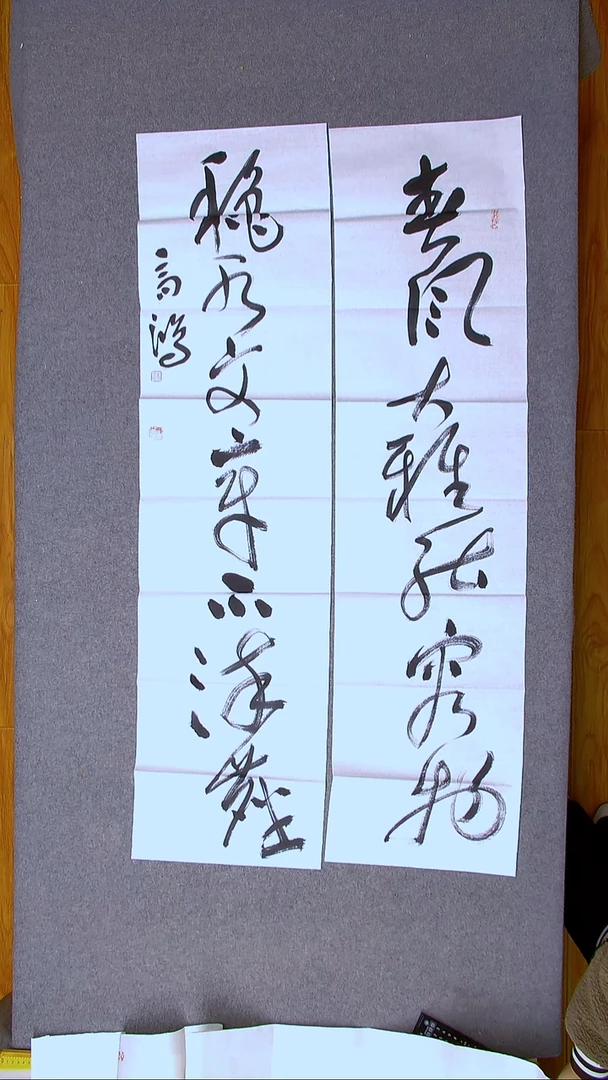 春风大雅能容物
秋水文章不染塵
高鸿